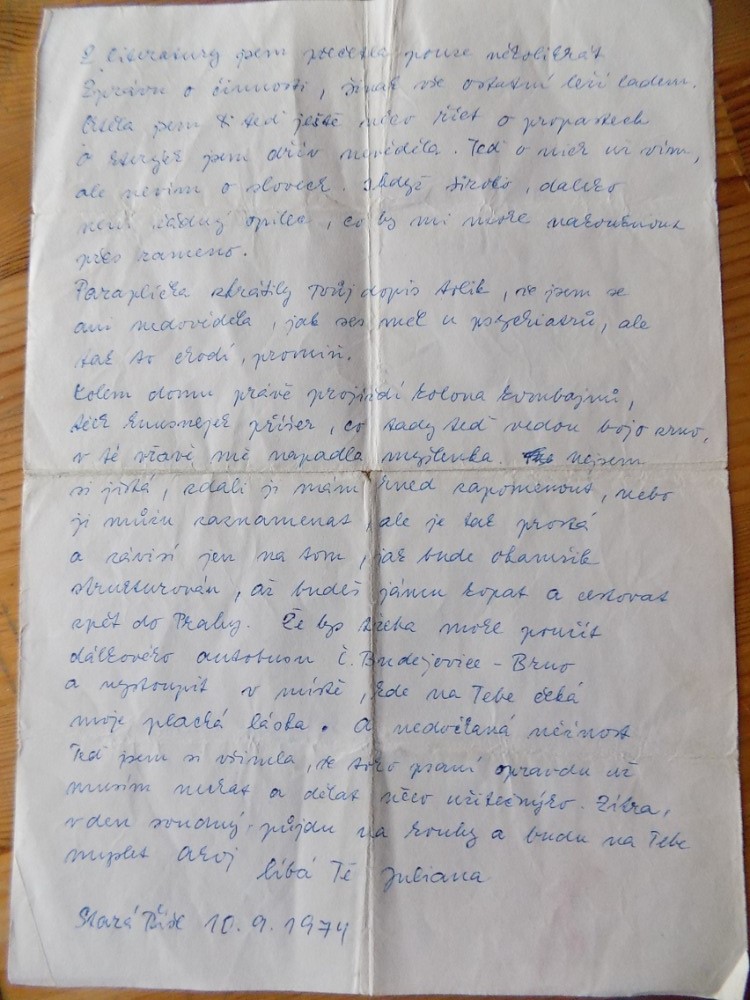 Z literatury jsem přečetla pouze několikrát
Zprávu o činnosti, jinak vše ostatní leží ladem.
Chtěla jsem ti teď ještě něco říct o propastech
O jsem dřív nevěděla. Teď o nich už vím,
ale nevím o slovech. široko, daleko
není žádný opilec, co by mi mohl nakouknout
přes rameno.
Paraplíčka zkrátily Tvůj dopis tolik, že jsem se
ani nedověděla, jak ses měl u psychiatrů, ale
tak to chodí, promiň.
Kolem domu právě projíždí kolona kombajnů,
těch hnusnejch příšer, co tady teď vedou bojo zrno,
v té vřavě mě napadla myšlenka. nejsem
si jistá, zdali ji mám hned zapomenout, nebo
ji můžu zaznamenat, ale je tak prostá
a závisí jen na tom, jak bude okamžik
strukturován, až budeš jámu kopat a cestovat
zpět do Prahy. Že bys třeba mohl použít
dálkového autobusu Č. Budějovice - Brno
a vystoupit v místě, kde na Tebe čeká
moje plachá láska. A nedočkaná něžnost
Teď jsem si všimla, že toho psaní opravdu už
musím nechat a dělat něco užitečnýho. Zítra,
v den soudný, půjdu na houby a budu na Tebe
myslet Ahoj
líbá Tě Juliana
Stará Říše 10.9.1974